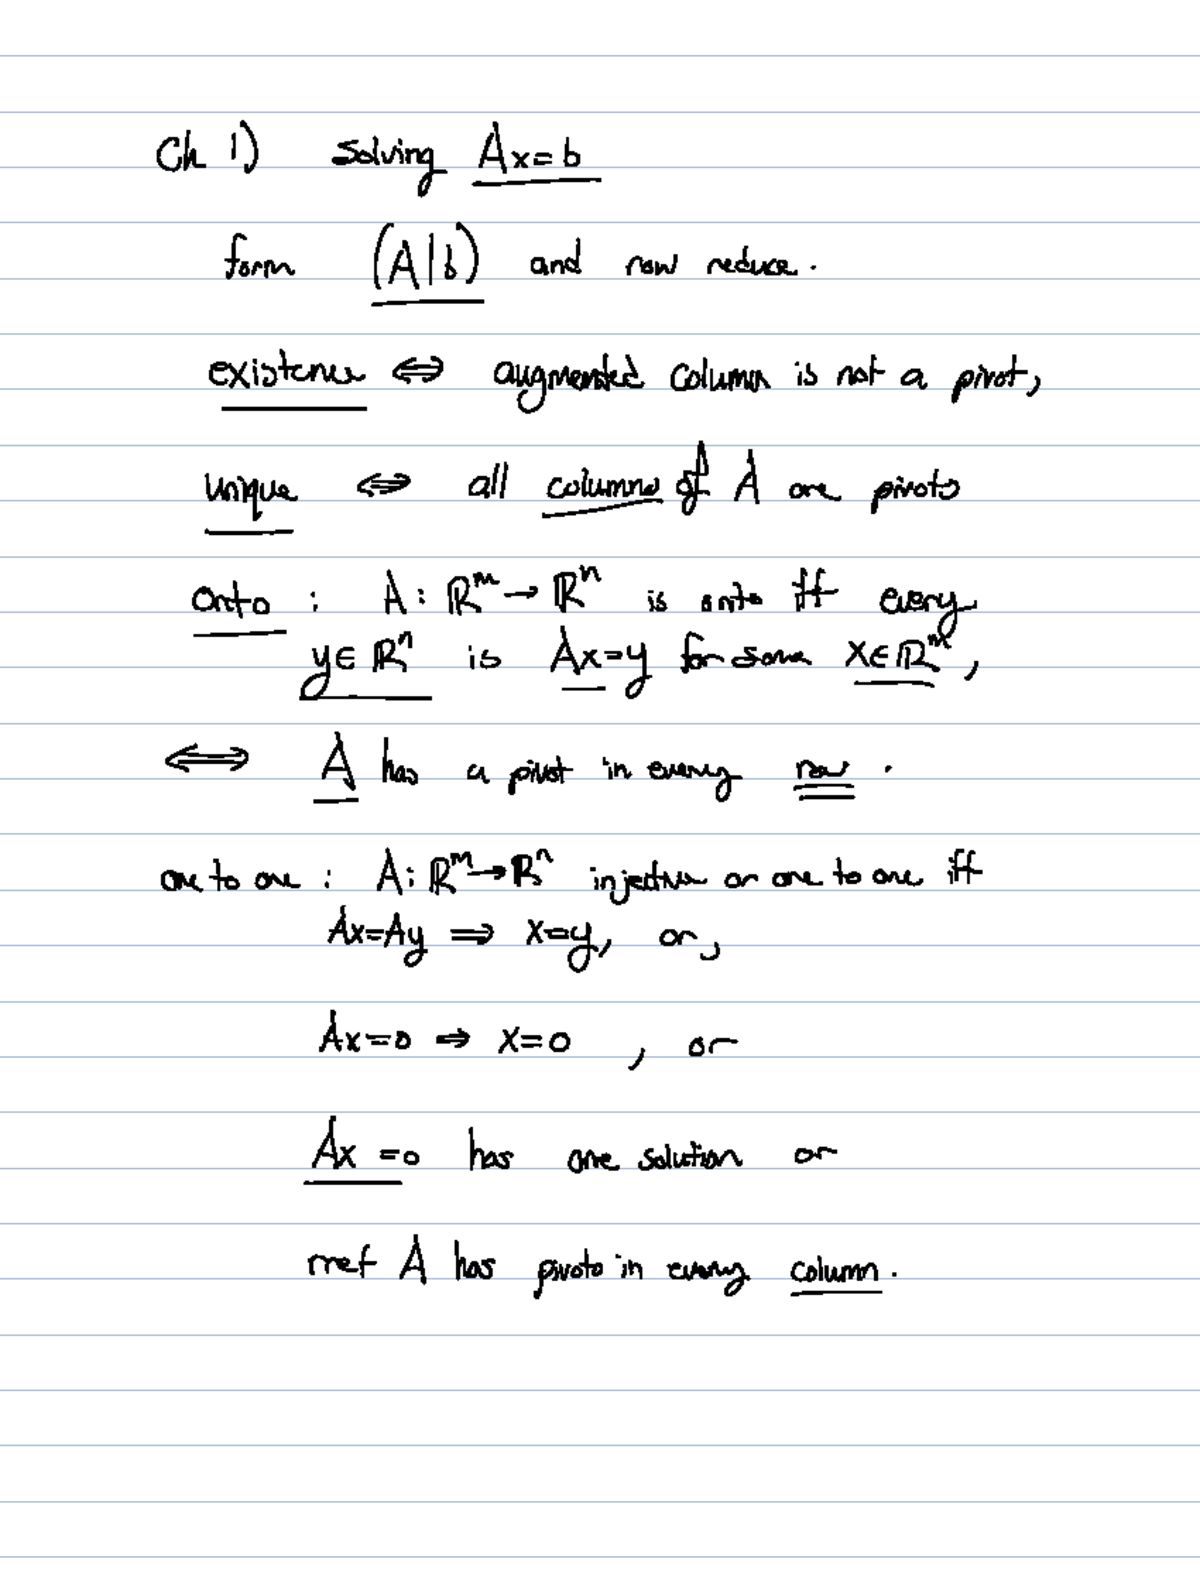 Ch 1) Solving Ax=b
form (A|b) and row reduce.
existence ⟺ augmented column is not a pivot,
unique ⟺ all columns of A are pivots
onto : A: ℝᵐ → ℝⁿ is onto iff every
y∈ℝⁿ is Ax=y for some x∈ℝᵐ,
⟺ A has a pivot in every row.
one to one : A: ℝᵐ→ℝⁿ injective or one to one iff
Ax=Ay ⟹ x=y, or,
Ax=0 ⟹ x=0 , or
Ax =0 has one solution or
rref A has pivots in every column.